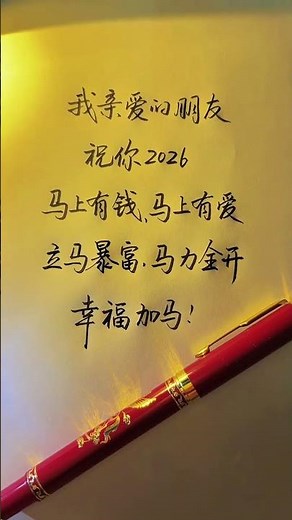 我亲爱的朋友
祝你2026
马上有钱、马上有爱
立马暴富、马力全开
幸福加马！